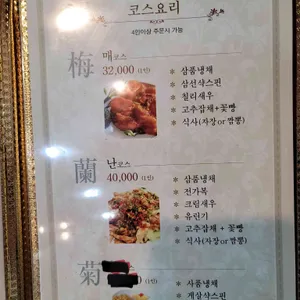 코스요리
4인이상 주문시 가능
梅
매코스
32,000 (1인)
* 삼품냉채
* 삼선샥스핀
* 칠리새우
* 고추잡채+꽃빵
* 식사(자장or짬뽕)
蘭
난코스
40,000 (1인)
* 삼품냉채
* 전가복
* 크림새우
* 유린기
* 고추잡채 + 꽃빵
* 식사(자장or 짬뽕)
菊
* 사품냉채
* 게살샥스핀